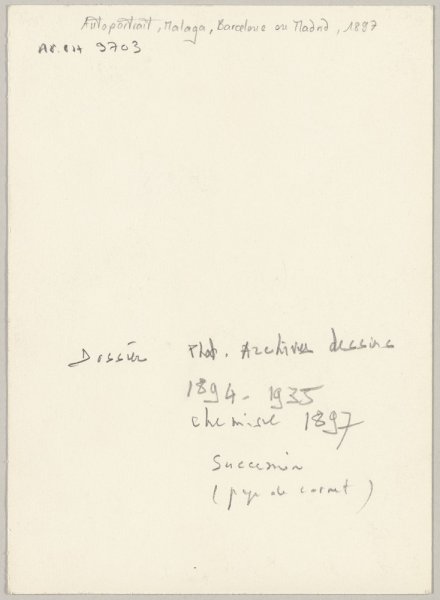 Autoportrait, Malaga, Barcelone ou Madrid, 1897
AR.PH 9703
Dossier Phot. Archives dessins
1894 - 1935
chemise 1897
Succession
(page de carnet)